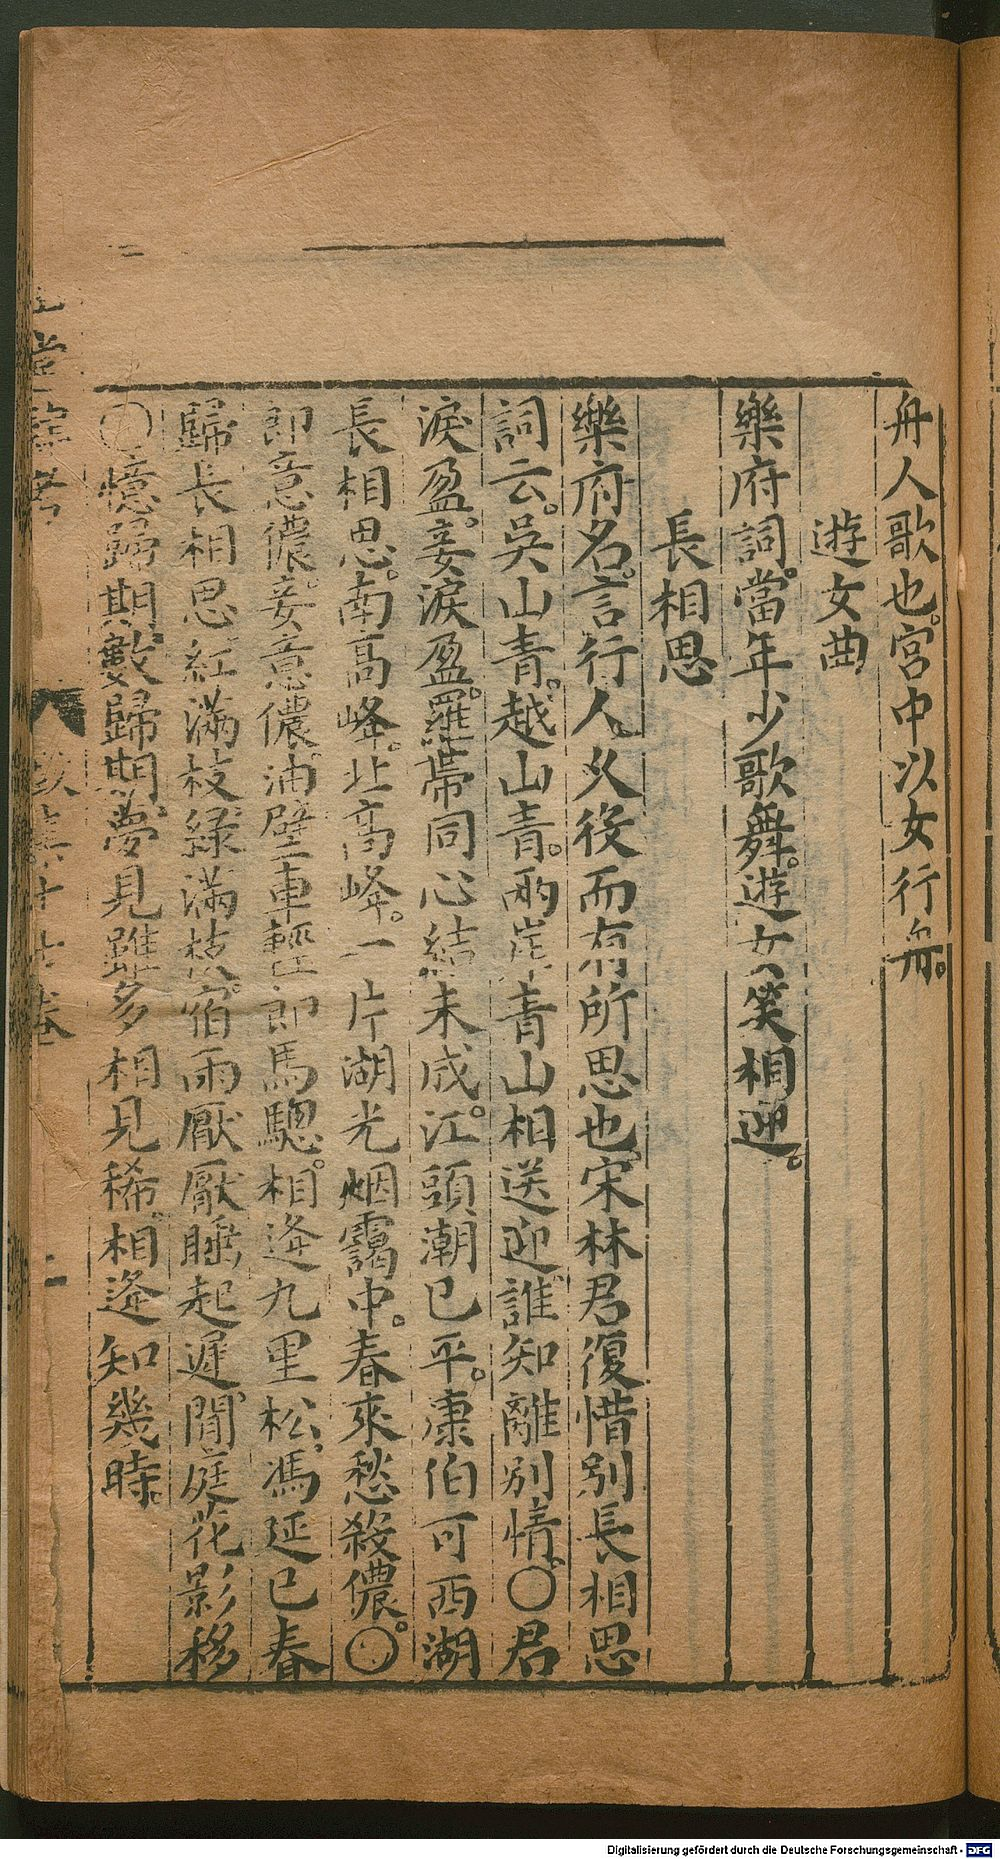 舟人歌也。宫中以女行舟。
遊女曲
樂府詞。當年少歌舞。遊女笑相迎。
長相思
樂府名。言行人乆役而有所思也。宋林君復惜别長相思
詞云。吳山青。越山青。兩岸青山相送迎。誰知離别情。〇君
淚盈。妾淚盈。羅帶同心結未成。江頭潮已平。康伯可西湖
長相思。南高峰。北高峰。一片湖光烟靄中。春來愁殺儂。〇
郎意儂。妾意儂。油壁車輕郎馬驄。相逢九里松。馮延巳春
歸長相思紅滿枝。綠滿枝。宿雨厭厭睡起遲。閒庭花影移
〇憶歸期。數歸期。夢見雖多相見稀。相逢知幾時。
卷
Digitalisierung gefördert durch die Deutsche Forschungsgemeinschaft - DFG